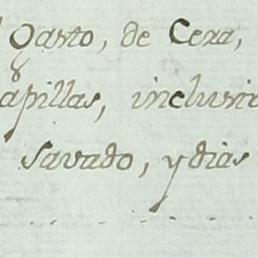 Gasto, de Cera,
apillas, inclusi
Savado, y dias